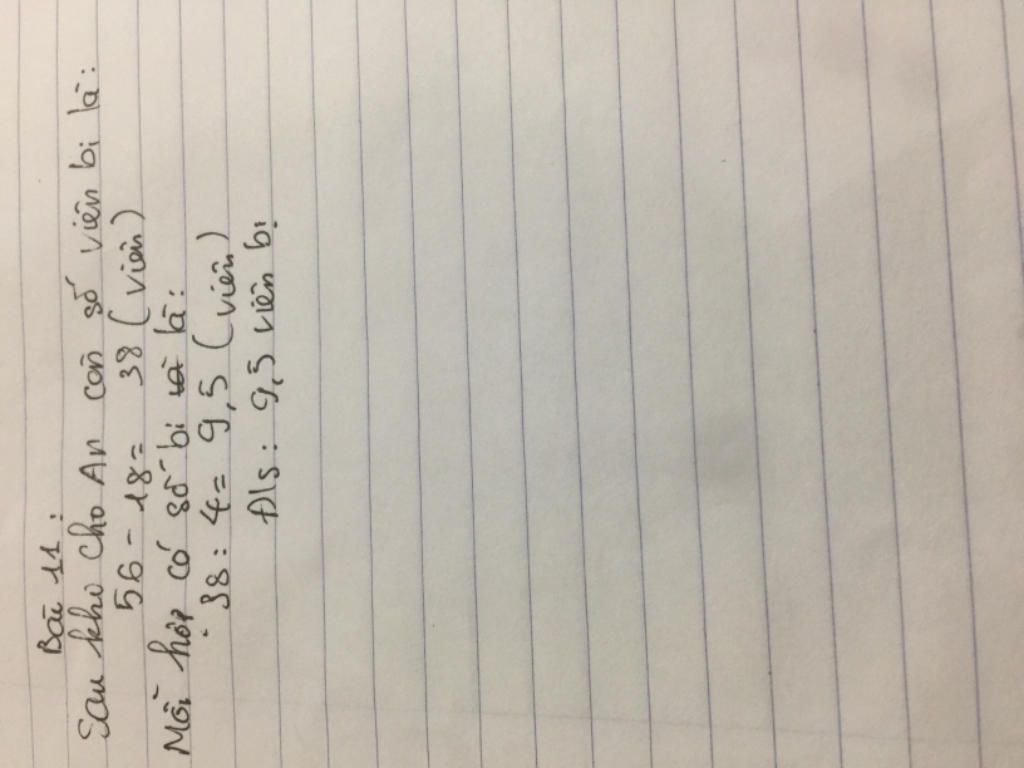 Bài 11:
Sau khi cho An còn số viên bi là:
56 - 18 = 38 (viên)
Mỗi hộp có số bi là:
38 : 4 = 9,5 (viên)
Đ/s: 9,5 viên bi